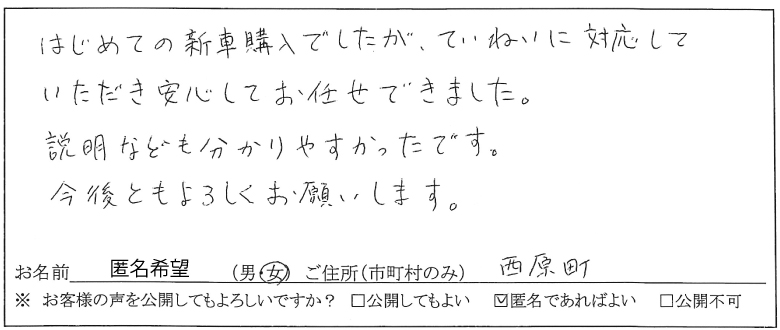 はじめての新車購入でしたが、ていねいに対応して
いただき安心してお任せできました。
説明なども分かりやすかったです。
今後ともよろしくお願いします。
お名前 匿名希望 (男・女) ご住所(市町村のみ) 西原町
※ お客様の声を公開してもよろしいですか? □公開してもよい ☑匿名であればよい □公開不可